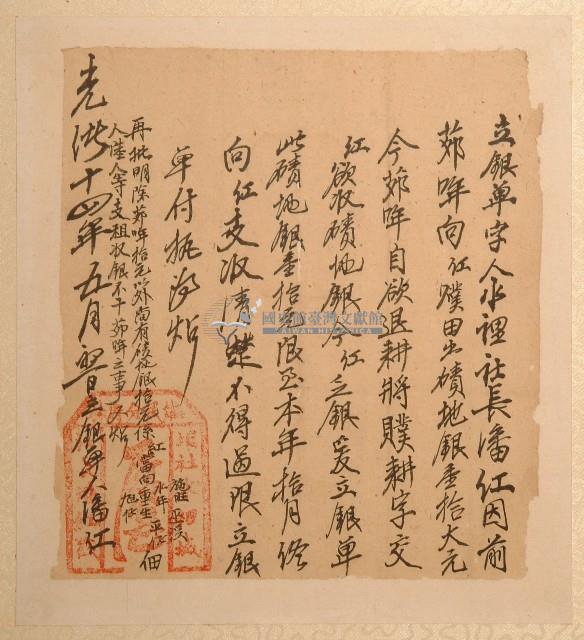 立銀單字人水裡社長潘紅因前
茆哖向紅贌田出磧地銀壹拾大元
今茆哖自欲退耕將贌耕字交
紅欲收磧地銀今紅立銀爰立銀單
此磧地銀壹拾元限至本年拾月終
向紅支收清楚不得過限立銀
單付執為炤
再批明除茆哖拾元以外尚有磧地銀拾元係紅當向重生
人等支租收銀不干茆哖之事又炤
光緒十四年五月 日立銀單人潘紅
國史館臺灣文獻館
TAIWAN HISTORICA